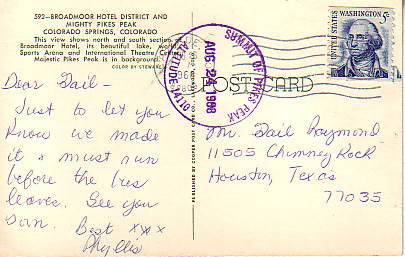 592—BROADMOOR HOTEL DISTRICT AND
MIGHTY PIKES PEAK
COLORADO SPRINGS, COLORADO
This view shows north and south section of
Broadmoor Hotel, its beautiful lake, world
Sports Arena and International Theatre Center
Majestic Pikes Peak is in background.
COLOR BY STEWART
Dear Gail—
Just to let you
know we made
it & must run
before the bus
leaves. See you
soon.
Best xxx
Phyllis
SUMMIT OF PIKES PEAK
ALTITUDE 14110
AUG 24 1968
POST CARD
U.S. POSTAGE
WASHINGTON
5c
Mr. Gail Raymond
11505 Chimney Rock
Houston, Texas
77035